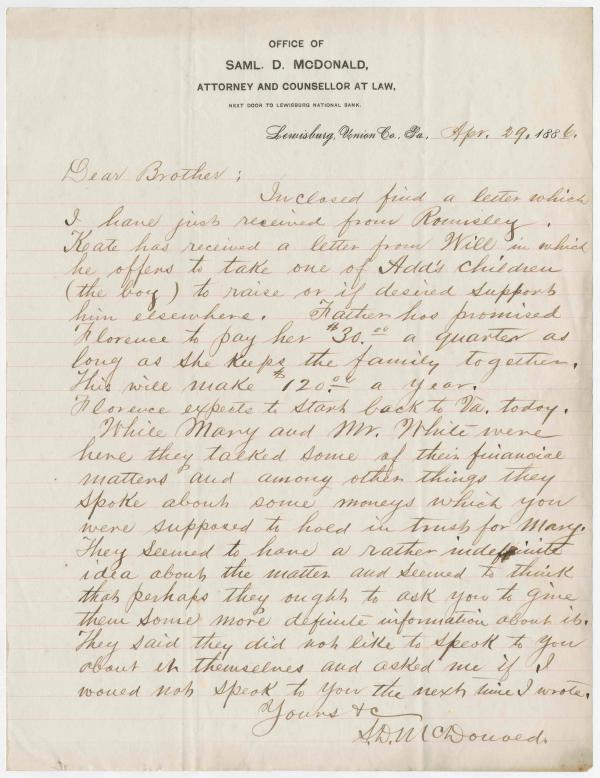 OFFICE OF
SAML. D. MCDONALD,
ATTORNEY AND COUNSELLOR AT LAW,
NEXT DOOR TO LEWISBURG NATIONAL BANK.
Lewisburg, Union Co., Pa., Apr. 29, 1886.
Dear Brother;
Inclosed find a letter which
I have just received from Rounsley.
Kate has received a letter from Will in which
he offers to take one of Add's children
(the boy) to raise or if desired support
him elsewhere. Father has promised
Florence to pay her $30.00 a quarter as
long as she keeps the family together.
This will make $120.00 a year.
Florence expects to start back to Va. today.
While Mary and Mr. White were
here they talked some of their financial
matters and among other things they
spoke about some moneys which you
were supposed to hold in trust for Mary.
They seemed to have a rather indefinite
idea about the matter and seemed to think
that perhaps they ought to ask you to give
them some more definite information about it.
They said they did not like to speak to you
about it themselves and asked me if I
would not speak to you the next time I wrote.
Yours &c
S.D. McDonald.